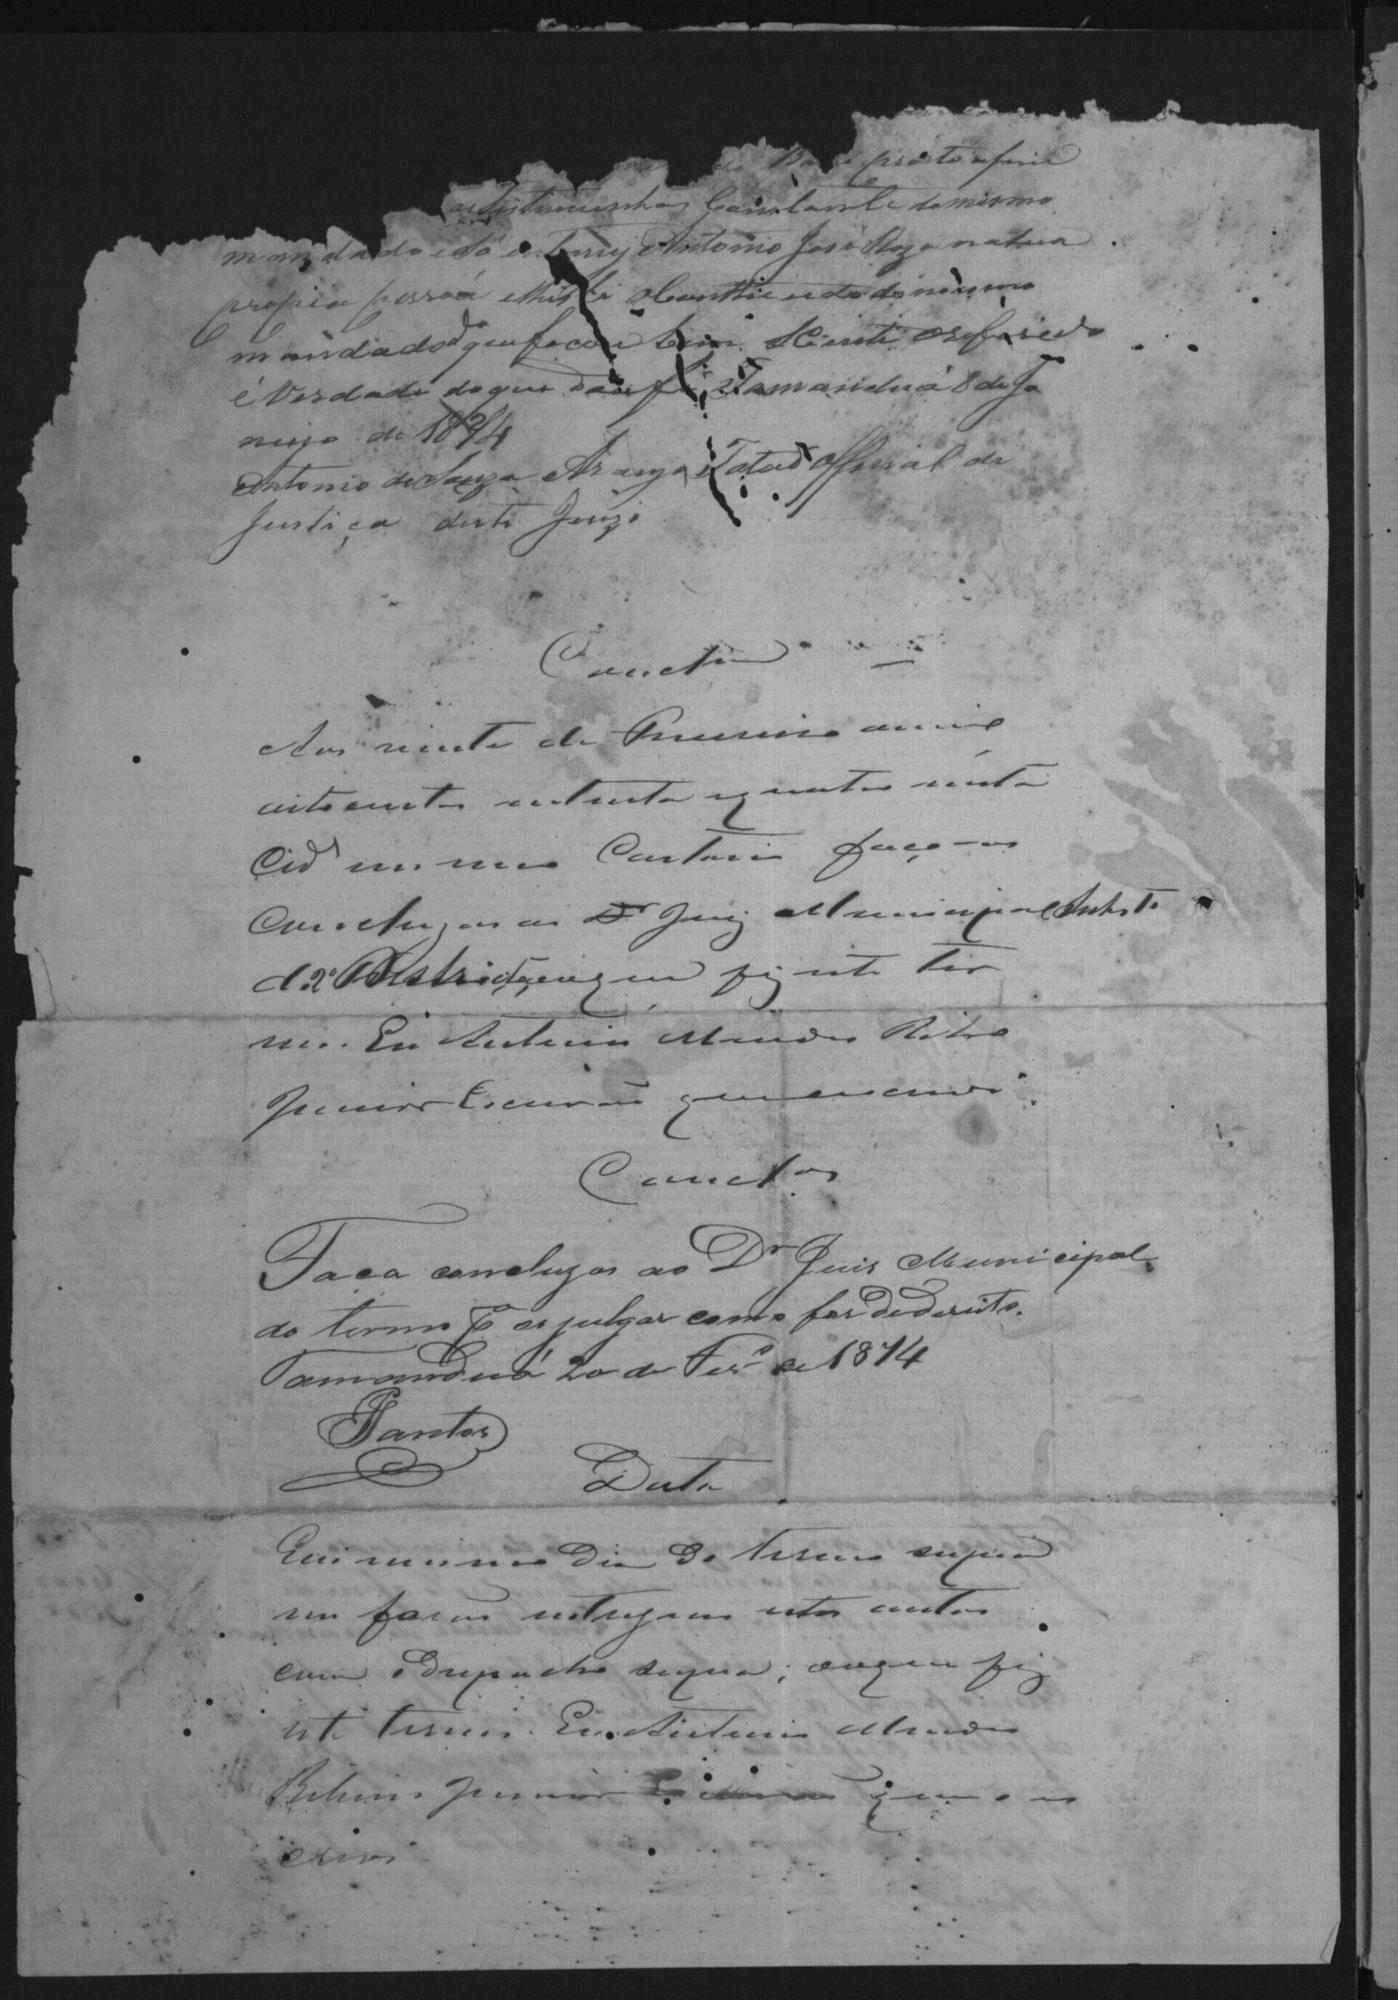 as testemunhas Constante do mesmo
mandado e Antonio José na sua
propria pessoa do mesmo
mandado que ficou bem Sciente o referido
é Verdade do que dou fé Tamanduá 8 de Ja
neiro de 1874
Antonio de Souza Araujo Official de
Justiça deste Juizo
Conclm
Aos vinte de Fevereiro de mil
oitocentos setenta e quatro nesta
Cidᵉ em meo Cartorio faço-os
Concluzos ao Dr Juiz Municipal Substo
d. 2º Destricto, do que fiz este ter
mo. Eu Antonio Mendes Ribro
Junior Escrivão que escrevi.
Conclos
Faça concluzos ao Dr Juis Municipal
do termo pa os julgar como for de dereito.
Tamanduá 20 de Fevro de 1874
Santos
Data
Em o mesmo dia do termo supra
me forão entregues estes autos
com o Despacho supra; do que fiz
este termo. Eu Antonio Mendes
Ribeiro Junior Escrivão que o es
crevi